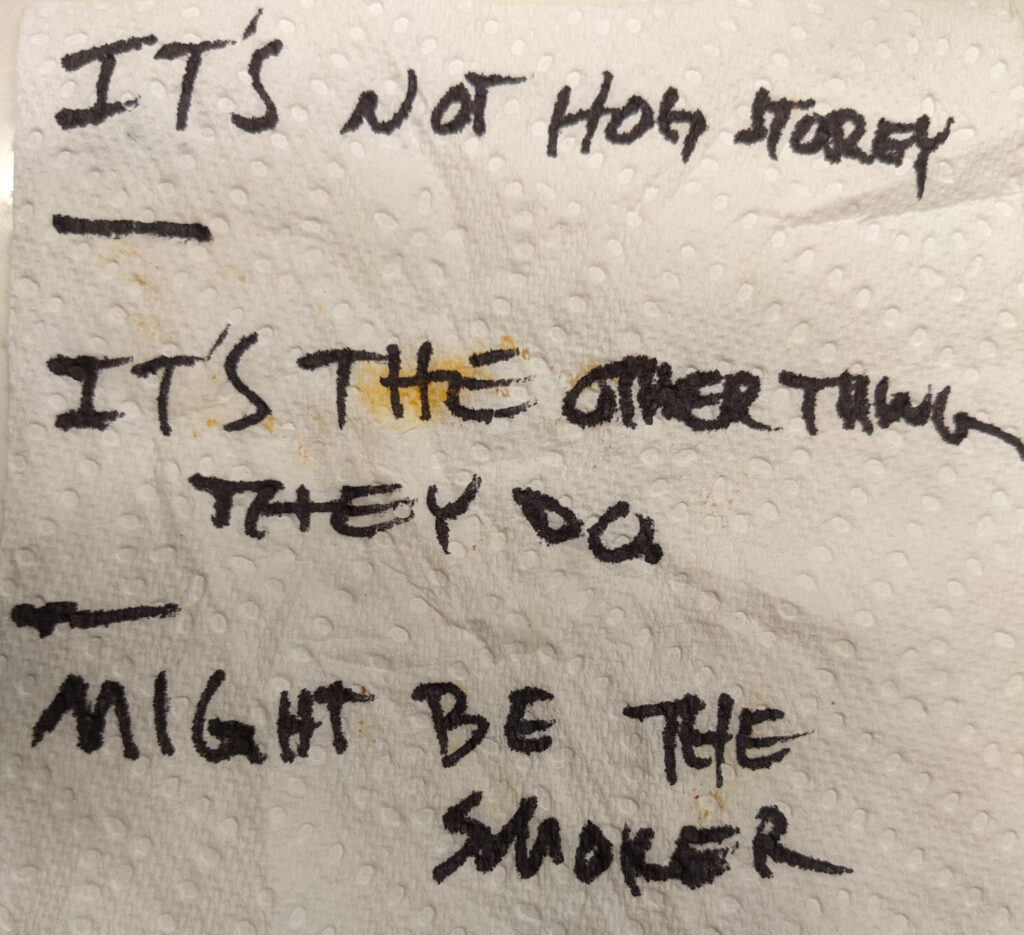 IT'S NOT HOG STOREY
—
IT'S THE OTHER THING
THEY DO.
—
MIGHT BE THE
SMOKER